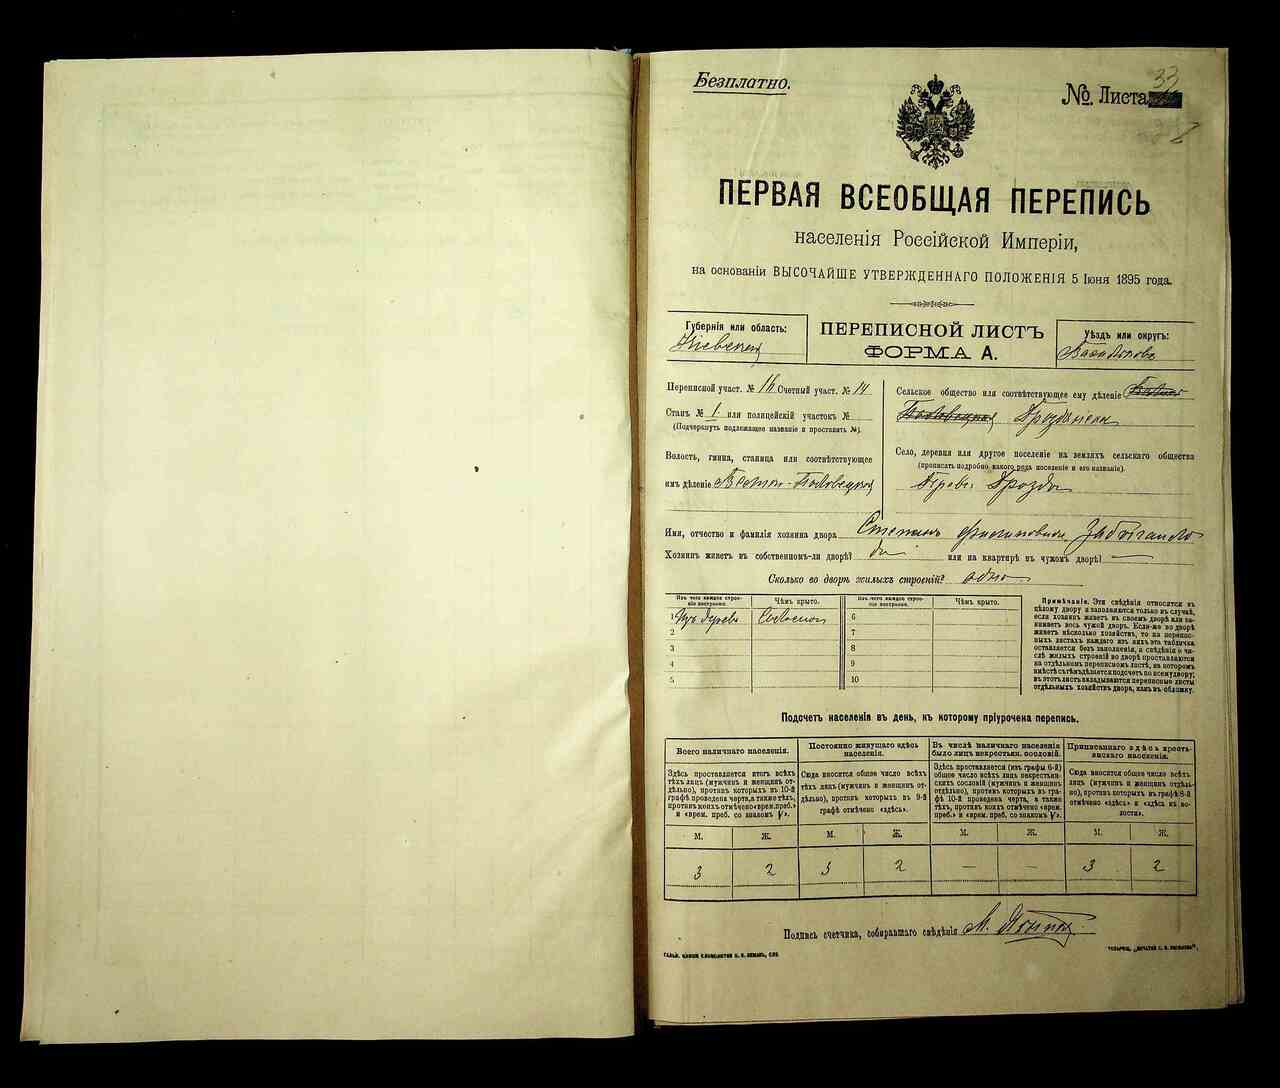 Безплатно.
№. Листа 33
ПЕРВАЯ ВСЕОБЩАЯ ПЕРЕПИСЬ
населенія Россійской Имперіи,
на основаніи ВЫСОЧАЙШЕ УТВЕРЖДЕННАГО ПОЛОЖЕНІЯ 5 Іюня 1895 года.
Губернія или область:
Кіевская
ПЕРЕПИСНОЙ ЛИСТЪ
ФОРМА А.
Уѣздъ или округъ:
Переписной участ. № 16 Счетный участ. № 14
Станъ № 1 или полицейскій участокъ №
(Подчеркнуть подлежащее названіе и проставить №).
Волость, гмина, станица или соотвѣтствующее
имъ дѣленіе
Сельское общество или соотвѣтствующее ему дѣленіе
Село, деревня или другое поселеніе на земляхъ сельскаго общества
(прописать подробно какого рода поселеніе и его названіе).
Дрозды
Имя, отчество и фамилія хозяина двора Степанъ
Хозяинъ живетъ въ собственномъ-ли дворѣ? да или на квартирѣ въ чужомъ дворѣ? —
Сколько во дворѣ жилыхъ строеній? одно
Изъ чего каждое строе-
ніе построено.
Чѣмъ крыто.
Изъ чего каждое строе-
ніе построено.
Чѣмъ крыто.
1 Изъ дерева Соломою
2
3
4
5
6
7
8
9
10
Примѣчаніе. Эти свѣдѣнія относятся къ
цѣлому двору и заполняются только въ случаѣ,
если хозяинъ живетъ въ своемъ дворѣ или за-
нимаетъ весь чужой дворъ. Если-же во дворѣ
живетъ нѣсколько хозяйствъ, то на перепис-
ныхъ листахъ каждаго изъ нихъ эта табличка
оставляется безъ заполненія, а свѣдѣнія о чи-
слѣ жилыхъ строеній во дворѣ проставляются
на отдѣльномъ переписномъ листѣ, на которомъ
вмѣстѣ съ тѣмъ дѣлается подсчетъ по всему двору;
въ этотъ листъ вкладываются переписные листы
отдѣльныхъ хозяйствъ двора, какъ въ обложку.
Подсчетъ населенія въ день, къ которому пріурочена перепись.
Всего наличнаго населенія.
Постоянно живущаго здѣсь
населенія.
Въ числѣ наличнаго населенія
было лицъ некрестьян. сословій.
Приписаннаго здѣсь кресть-
янскаго населенія.
Здѣсь проставляется итогъ всѣхъ
тѣхъ лицъ (мужчинъ и женщинъ от-
дѣльно), противъ которыхъ въ 10-й
графѣ проведена черта, а также тѣхъ,
противъ коихъ отмѣчено «врем. преб.»
и «врем. преб. со знакомъ V».
Сюда вносится общее число всѣхъ
тѣхъ лицъ (мужчинъ и женщинъ от-
дѣльно), противъ которыхъ въ 9-й
графѣ отмѣчено «здѣсь».
Здѣсь проставляется (изъ графы 6-й)
общее число всѣхъ лицъ некрестьян-
скихъ сословій (мужчинъ и женщинъ
отдѣльно), противъ которыхъ въ гра-
фѣ 10-й проведена черта, а также
тѣхъ, противъ коихъ отмѣчено «врем.
преб.» и «врем. преб. со знакомъ V».
Сюда вносится общее число всѣхъ
лицъ (мужчинъ и женщинъ отдѣль-
но), противъ которыхъ въ графѣ 8-й
отмѣчено «здѣсь» и «здѣсь въ во-
лости».
М. Ж. М. Ж. М. Ж. М. Ж.
3 2 3 2 — — 3 2
Подпись счетчика, собиравшаго свѣдѣнія М.